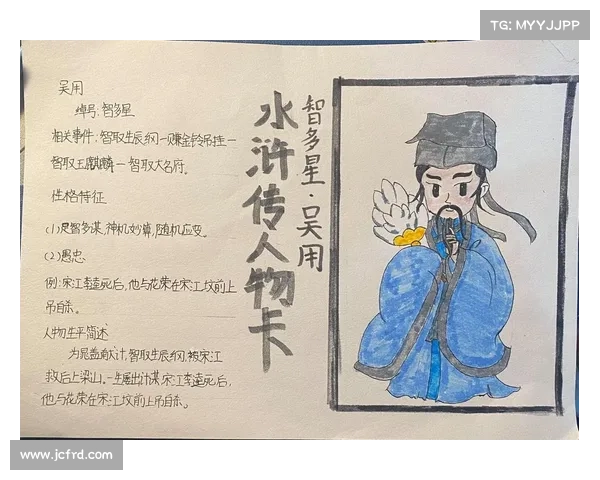 TG: MYYJJPP
吴用
绰号:智多星
相关事件:智取生辰纲一赚金铃吊挂一
智取玉麒麟一智取大名府。
性格特征
(1)足智多谋,神机妙算,随机应变。
(2)愚忠
例:宋江李逵死后,他与花荣在宋江坟前上
吊自杀。
人物生平简述
为晁盖献计,智取生辰纲,被宋江
救后上梁山。一生屡出计谋宋江李逵死后,
他与花荣在宋江坟前上吊自杀。
水浒传人物卡
智多星·吴用
www.jcfrd.com